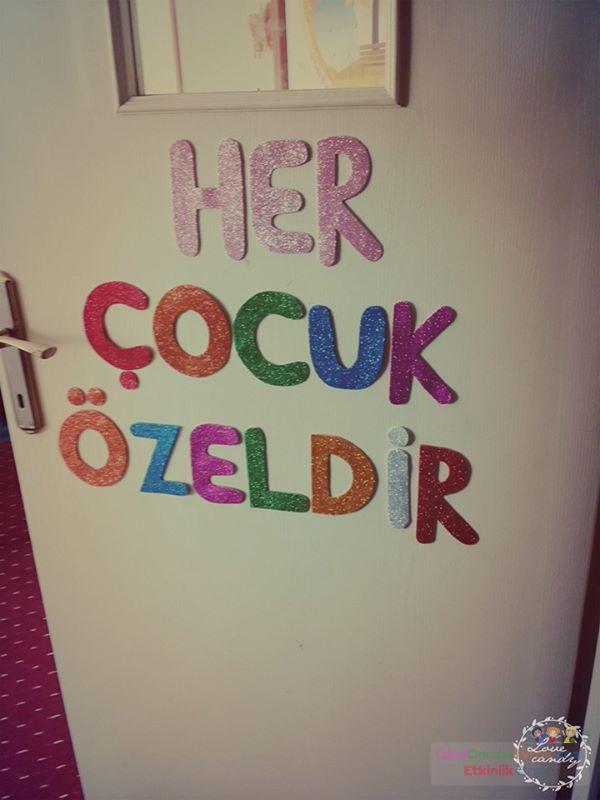 HER
ÇOCUK
ÖZELDİR
Etkinlik
Love
candy